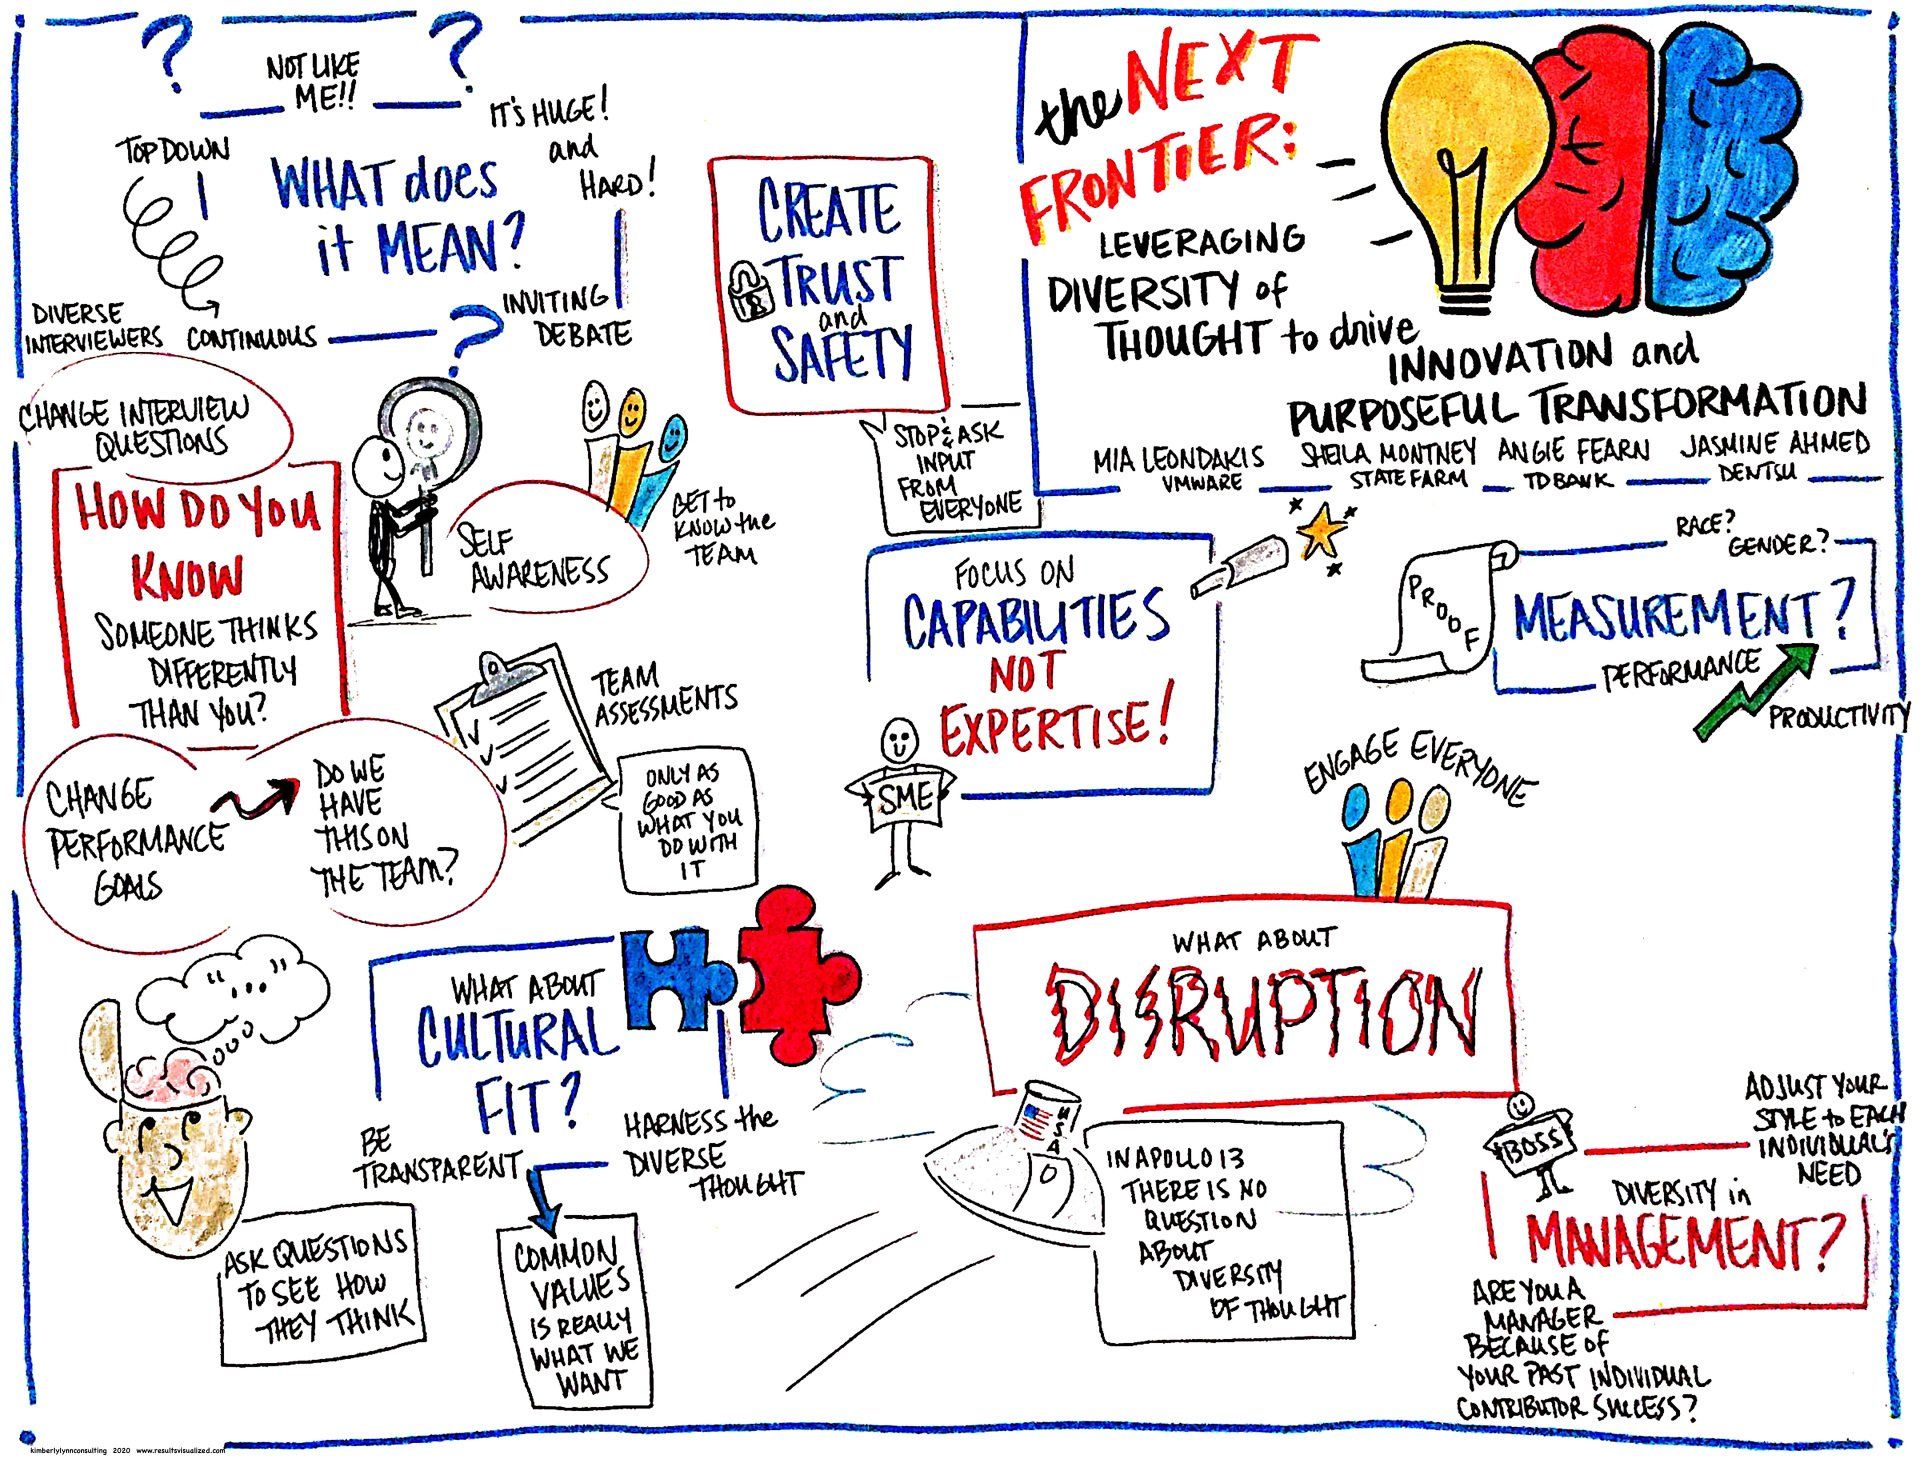 the NEXT
FRONTIER:
LEVERAGING
DIVERSITY of
THOUGHT to drive
INNOVATION and
PURPOSEFUL TRANSFORMATION
MIA LEONDAKIS
VMWARE
SHEILA MONTNEY
STATE FARM
ANGIE FEARN
TD BANK
JASMINE AHMED
DENTSU
?
?
NOT LIKE
ME!!
TOP DOWN
IT'S HUGE!
and
HARD!
WHAT does
it MEAN?
DIVERSE
INTERVIEWERS
CONTINUOUS
?
INVITING
DEBATE
CHANGE INTERVIEW
QUESTIONS
HOW DO YOU
KNOW
SOMEONE THINKS
DIFFERENTLY
THAN YOU?
CHANGE
PERFORMANCE
GOALS
DO WE
HAVE
THIS ON
THE TEAM?
SELF
AWARENESS
GET to
KNOW the
TEAM
TEAM
ASSESSMENTS
ONLY AS
GOOD AS
WHAT YOU
DO WITH
IT
CREATE
TRUST
and
SAFETY
STOP & ASK
INPUT
FROM
EVERYONE
FOCUS ON
CAPABILITIES
NOT
EXPERTISE!
SME
PROOF
RACE?
GENDER?
MEASUREMENT?
PERFORMANCE
PRODUCTIVITY
ENGAGE EVERYONE
WHAT ABOUT
DISRUPTION
USA
IN APOLLO 13
THERE IS NO
QUESTION
ABOUT
DIVERSITY
OF THOUGHT
BOSS
ADJUST YOUR
STYLE to EACH
INDIVIDUAL'S
NEED
DIVERSITY in
MANAGEMENT?
ARE YOU A
MANAGER
BECAUSE OF
YOUR PAST INDIVIDUAL
CONTRIBUTOR SUCCESS?
WHAT ABOUT
CULTURAL
FIT?
BE
TRANSPARENT
HARNESS the
DIVERSE
THOUGHT
COMMON
VALUES
IS REALLY
WHAT WE
WANT
"..."
ASK QUESTIONS
TO SEE HOW
THEY THINK
kimberlylynnconsulting 2020 www.resultsvisualized.com